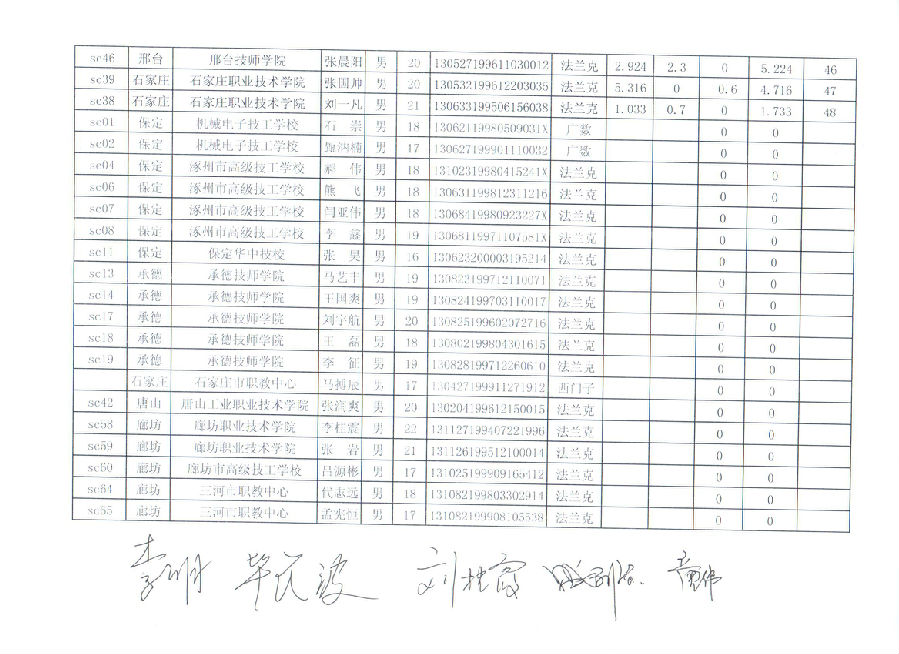 sc46 邢台 邢台技师学院 张晨阳 男 20 130527199611030012 法兰克 2.924 2.3 0 5.224 46
sc39 石家庄 石家庄职业技术学院 张国帅 男 20 130532199612203035 法兰克 5.316 0 0.6 4.716 47
sc38 石家庄 石家庄职业技术学院 刘一凡 男 21 130633199506156038 法兰克 1.033 0.7 0 1.733 48
sc01 保定 机械电子技工学校 石崇 男 18 13062119980509031X 广数 0 0
sc02 保定 机械电子技工学校 男 17 130627199901110032 广数 0 0
sc04 保定 涿州市高级技工学校 伟 男 18 13102319980415241X 法兰克 0 0
sc06 保定 涿州市高级技工学校 熊飞 男 18 130631199812311216 法兰克 0 0
sc07 保定 涿州市高级技工学校 闫亚伟 男 18 13068119980923327X 法兰克 0 0
sc08 保定 涿州市高级技工学校 李鑫 男 19 13068119971107581X 法兰克 0 0
sc11 保定 保定华中技校 张昊 男 16 130623200003195214 法兰克 0 0
sc13 承德 承德技师学院 马艺丰 男 19 130823199712110071 法兰克 0 0
sc14 承德 承德技师学院 王国爽 男 19 130824199703110017 法兰克 0 0
sc17 承德 承德技师学院 刘宇航 男 20 130825199602072716 法兰克 0 0
sc18 承德 承德技师学院 王磊 男 18 130802199804301615 法兰克 0 0
sc19 承德 承德技师学院 李征 男 19 法兰克 0 0
石家庄 石家庄市职教中心 马搏辰 男 17 130427199911271912 西门子 0 0
sc42 唐山 唐山工业职业技术学院 张滨爽 男 20 130204199612150015 法兰克 0 0
sc58 廊坊 廊坊职业技术学院 李柱震 男 22 131127199407221996 法兰克 0 0
sc59 廊坊 廊坊职业技术学院 张岩 男 21 131126199512100014 法兰克 0 0
sc60 廊坊 廊坊市高级技工学校 吕源彬 男 17 法兰克 0 0
sc64 廊坊 三河市职教中心 代志远 男 18 131082199803302914 法兰克 0 0
sc65 廊坊 三河市职教中心 孟宪恒 男 17 131082199908105538 法兰克 0 0
李明 刘桂霞